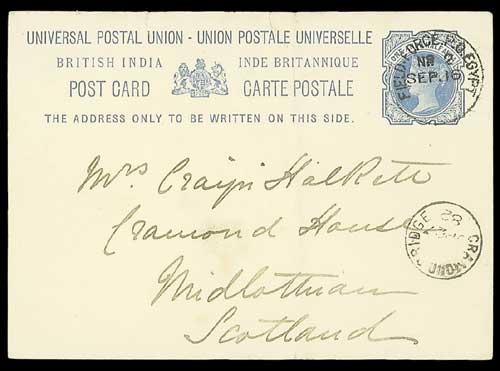 UNIVERSAL POSTAL UNION - UNION POSTALE UNIVERSELLE
BRITISH INDIA INDE BRITANNIQUE
POST CARD CARTE POSTALE
THE ADDRESS ONLY TO BE WRITTEN ON THIS SIDE.
FIELD FORCE P.O. EGYPT
SEP. 16
Mrs Craigie Halkett
Cramond House
Midlothian
Scotland
CRAMOND BRIDGE
82